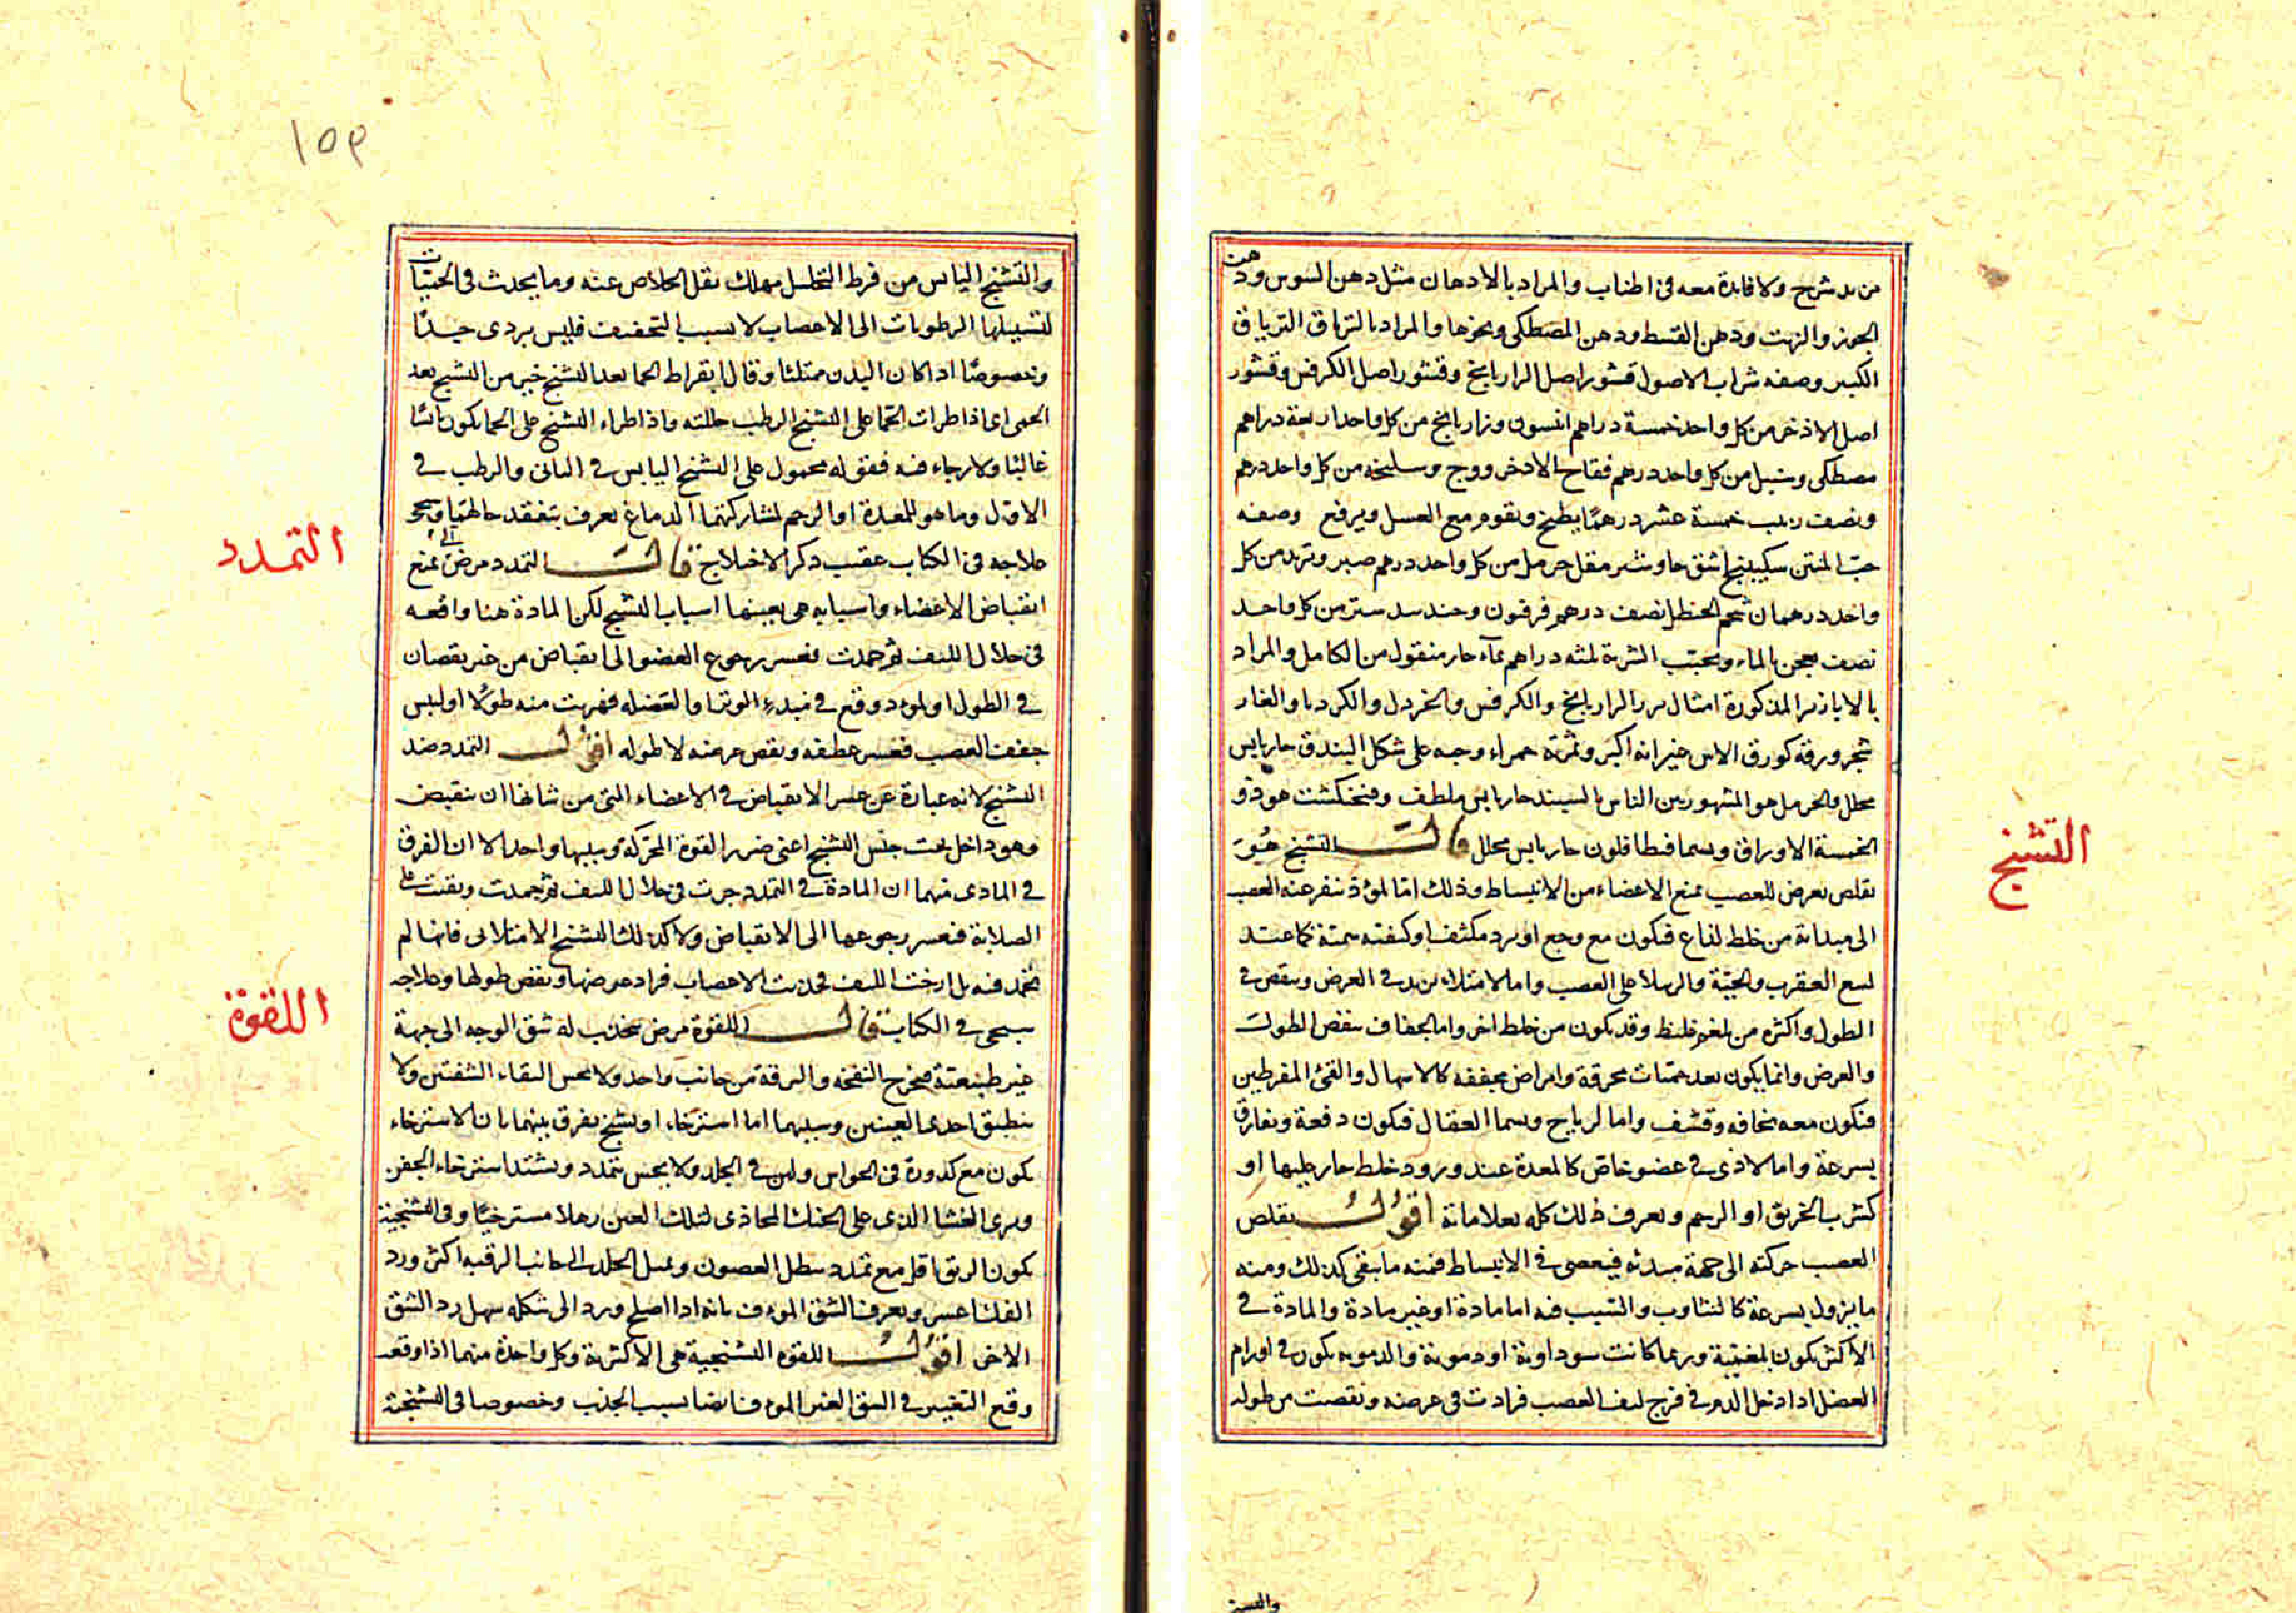 من بد شرح ولا فائدة معه فى اطناب والمراد بالادهان مثل دهن السوس ودهن
الجوز والزيت ودهن القسط ودهن المصطكى ونحوها والمراد بالترياق الترياق
الكبير وصفه شراب الاصول قشور اصل الرازيانج وقشور اصل الكرفس وقشور
اصل الاذخر من كل واحد خمسة دراهم انيسون ورازيانج من كل واحد اربعة دراهم
مصطكى وسنبل من كل واحد درهم فقاح الاذخر ووج وسليخه من كل واحد درهم
ونصف زبيب خمسة عشر درهمًا يطبخ ويقوم مع العسل ويرفع وصفه
حبّ المنتن سكبينج اشق جاوشير مقل حرمل من كل واحد درهم صبر وتربد من كل
واحد درهمان شحم الحنظل نصف درهم فرفيون وجندبيدستر من كل واحد
نصف يعجن بالماء ويحبّب الشربة ثلثه دراهم بمآء حار منقول من الكامل والمراد
بالابازير المذكورة امثال بزر الرازيانج والكرفس والخردل والكرويا والغار
شجر ورقه كورق الاس غير انه اكبر وثمرته حمراء وحبه على شكل البندق حار يابس
محلل والحرمل هو المشهور بين الناس بالسپند حار يابس ملطف وفنجنكشت هو ذو
الخمسة الاوراق ويسما فنطافلون حار يابس محلل قالَ التشنج هُوَ
تقلص يعرض للعصب يمنع الاعضاء من الانبساط وذلك امّا لموذ ينفر عنه العصب
الى مبدائه من خلط لذاع فيكون مع وجع او برد مكثف او كيفيه سمّية كما عند
لسع العقرب والحيّة والرتيلا على العصب واما لامتلاء يزيد فى العرض وينقص فى
الطول واكثره من بلغم غليظ وقد يكون من خلط اخر واما لجفاف ينقص الطول
والعرض وانما يكون بعد حميّات محرقة وامراض مجففه كالاسهال والقئ المفرطين
فيكون معه نحافه وقشف واما لرياح ويسما العقال فيكون دفعة ويفارق
بسرعة واما لاذى فى عضو خاص كالمعدة عند ورود خلط حار عليها او
كشرب الخربق او الرحم ويعرف ذلك كله بعلاماته اقولُ تقلص
العصب حركته الى جهة مبدئه فيعصى فى الانبساط فمنه ما يبقى كذلك ومنه
ما يزول بسرعة كالتثاوب والسبب فيه اما مادة او غير مادة والمادة فى
الاكثر يكون بلغمية وربما كانت سوداوية او دموية والدمويه يكون فى اورام
العضل اذا دخل الدم فى فرج ليف العصب فزادت فى عرضه ونقصت من طوله
التشنج
والتشنج
١٥٩
والتشنج اليابس من فرط التحلل مهلك يقل الخلاص عنه وما يحدث فى الحميّات
لتسييلها الرطوبات الى الاعصاب لا بسبب التجفيف فليس بردى جدًا
وخصوصًا اذا كان البدن ممتلئا وقال ابقراط الحما بعد التشنج خير من التشنج بعد
الحمى اى اذا طرات الحمّا على التشنج الرطب حللته واذا طراء التشنج على الحما يكون يابسًا
غالبًا ولا رجاء فيه فقوله محمول على التشنج اليابس فى الثانى والرطب فى
الاول وما هو للمعدة او الرحم لمشاركتهما الدماغ يعرف بتفقد حالهما ويجئ
علاجه فى الكتاب عقيب ذكر الاختلاج قالَ التمدد مرض آلى يمنع
انقباض الاعضاء واسبابه هى بعينها اسباب التشنج لكن المادة هنا واقعه
فى خلال الليف ثم جمدت فعسر رجوع العضو الى انقباض من غير نقصان
فى الطول او لموذ وقع فى مبدء الوتر او العضله فهربت منه طولًا او ليبس
جفف العصب فعسر عطفه ونقص عرضه لا طوله اقولُ التمدد ضد
التشنج لانه عبارة عن عسر الانقباض فى الاعضاء التى من شانها ان تنقبض
وهو داخل تحت جنس التشنج اعنى ضرر القوة المحركة وسببها واحد الا ان الفرق
فى المادى منهما ان المادة فى التمدد جرت فى خلال الليف ثم جمدت وبقيت على
الصلابة فتعسر رجوعها الى الانقباض ولا كذلك التشنج الامتلائى فانها لم
تجمد فيه بل ارخت الليف فجذبت الاعصاب فزاد عرضها ونقص طولها وعلاجه
سيجى فى الكتاب قالَ اللقوة مرض ينجذب له شق الوجه الى جهة
غير طبيعية فيخرج النفخه والبزقة من جانب واحد ولا يحسن التقاء الشفتين ولا
ينطبق احدى العينين وسببها اما استرخاء او تشنج يفرق بينهما بان الاسترخاء
يكون مع كدورة فى الحواس ولين فى الجلد ولا يحس بتمدد ويشتد استرخاء الجفن
ويرى الغشا الذى على الحنك المحاذى لتلك العين رهلا مسترخيًا وفى التشنجية
يكون الريق اقل مع تمدد يبطل الغضون ويميل الجلد الى جانب الرقبه اكثر ورد
الفك عسر ويعرف الشق المؤف بانه اذا اصلح ورد الى شكله سهل رد الشق
الاخر اقولُ اللقوه التشنجية هى الاكثرية وكل واحدة منهما اذا وقعت
وقع التغيير فى الشق الغير المؤف ايضا بسبب الجذب وخصوصا فى التشنجية
التمدد
اللقوة